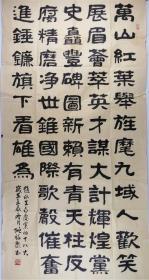 萬山紅葉舉旌麾九域人歡笑
展眉薈萃英才謀大計輝煌黨
史矗豐碑圖新賴有青天柱反
腐精磨淨世錐國際歌聲催奮
進錘鐮旗下看雄為